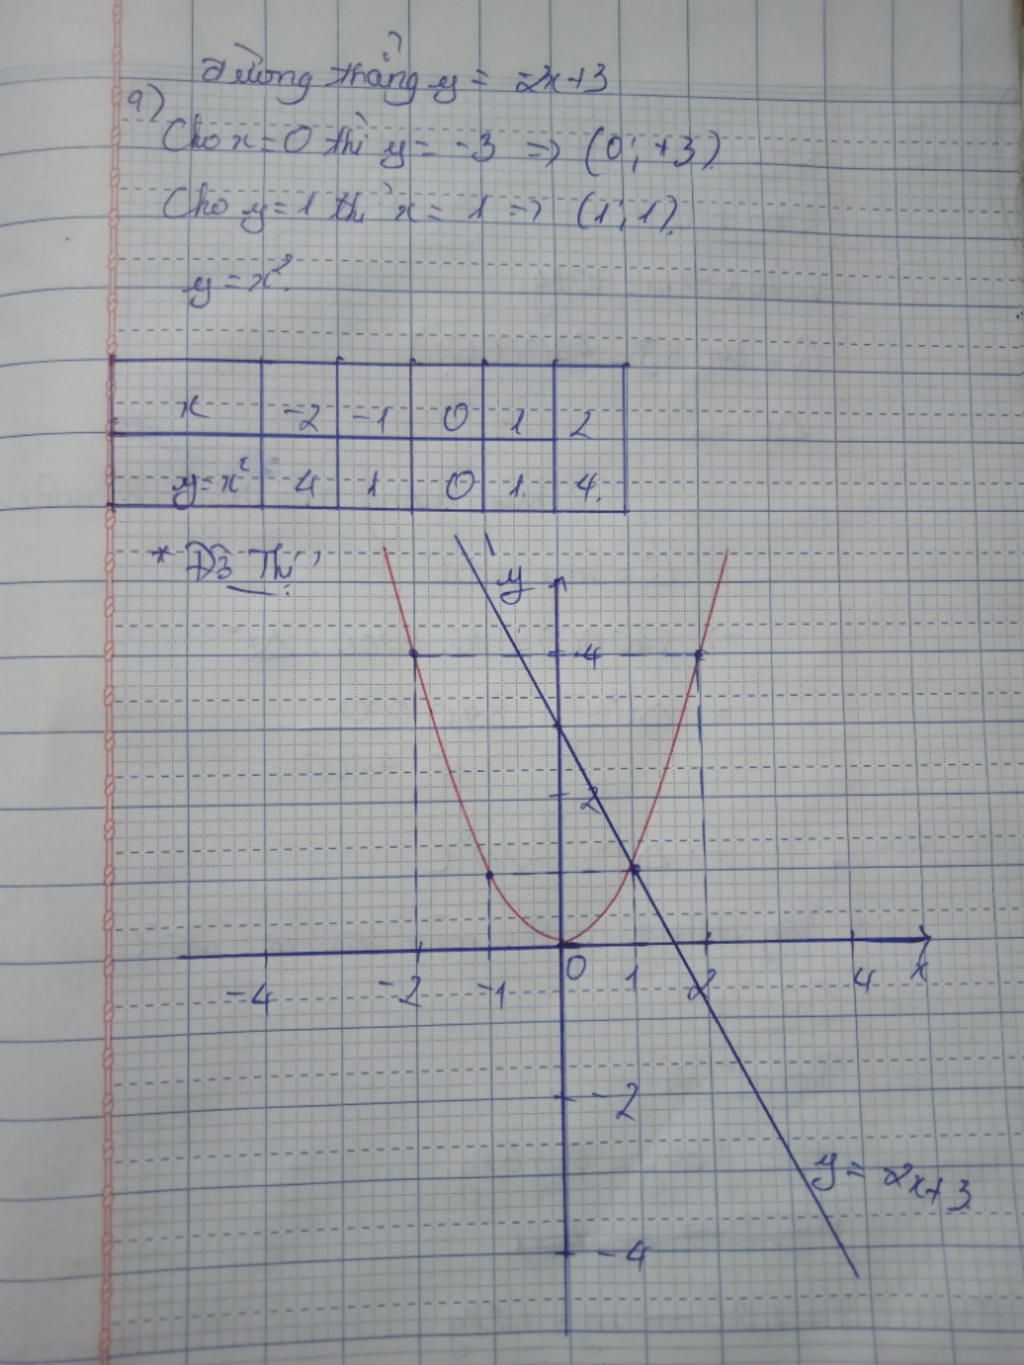 đường thẳng y = -2x+3
a)
Cho x=0 thì y= -3 => (0; +3)
Cho y=1 thì x= 1 => (1; 1).
y=x².
x -2 -1 0 1 2
y=x² 4 1 0 1 4
* Đồ Thị
y
4
2
-4 -2 -1 0 1 2 4 x
-2
y= -2x+3
-4